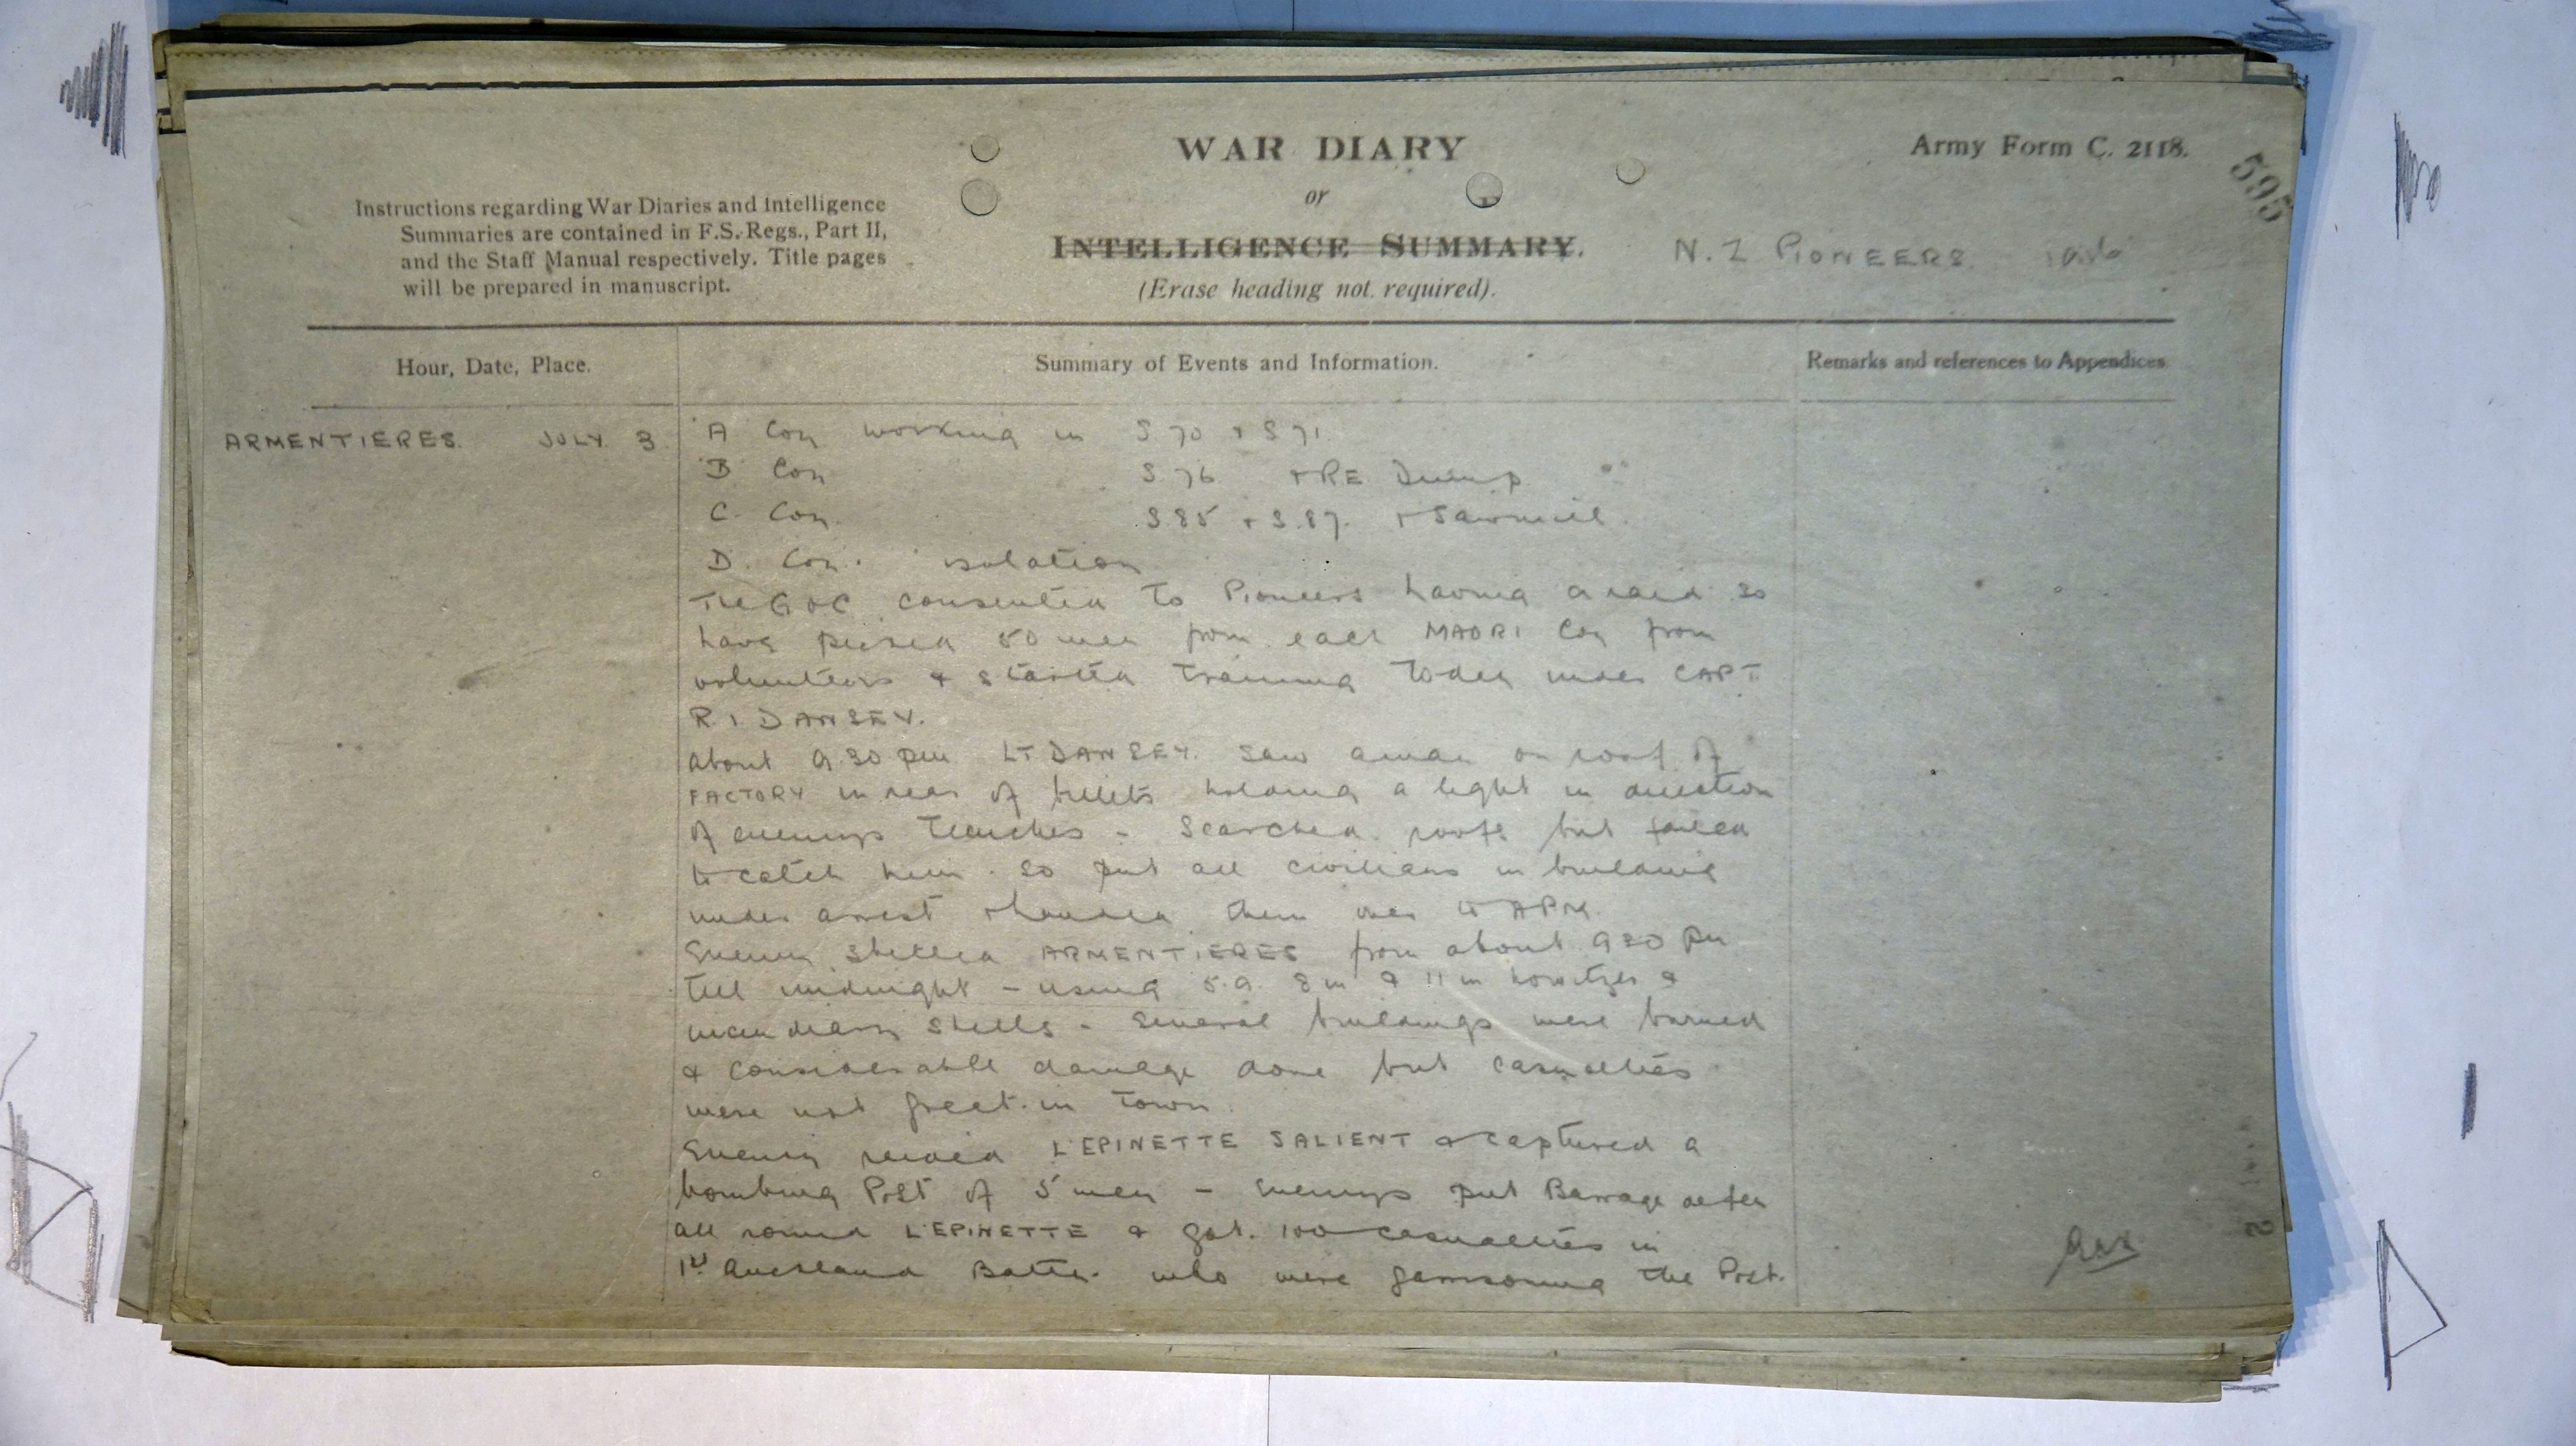 WAR DIARY
or
INTELLIGENCE SUMMARY.
(Erase heading not required).
Army Form C. 2118.
595
Instructions regarding War Diaries and Intelligence
Summaries are contained in F.S. Regs., Part II,
and the Staff Manual respectively. Title pages
will be prepared in manuscript.
N.Z PIONEERS 1916
Hour, Date, Place.
Summary of Events and Information.
Remarks and references to Appendices
ARMENTIERES. JULY 3
A Coy working in S 70 + S 71.
B Coy S. 76 + RE Dump
C. Coy. S 85 + S. 87. + Sawmill.
D. Coy. isolation
The GOC consented to Pioneers having a raid so
have picked 50 men from each MAORI Coy from
volunteers & started training today under CAPT.
R. I DANSEY.
about 9.30 pm LT DANSEY. saw a man on roof of
FACTORY in rear of billets holding a light in direction
of enemys trenches - Searched roofs but failed
to catch him. so put all civilians in building
under arrest + handed them over to APM.
Enemy shelled ARMENTIERES from about 930 pm
till midnight - using 5.9. 8 in & 11 in howitzer &
incendiary shells - Several buildings were burned
& considerable damage done but casualties
were not great in town.
Enemy raided L'EPINETTE SALIENT & captured a
bombing Post of 5 men - enemys put Barrage after
all round L'EPINETTE & got. 100 casualties in
1st Auckland Battn. who were garrisoning the Post.